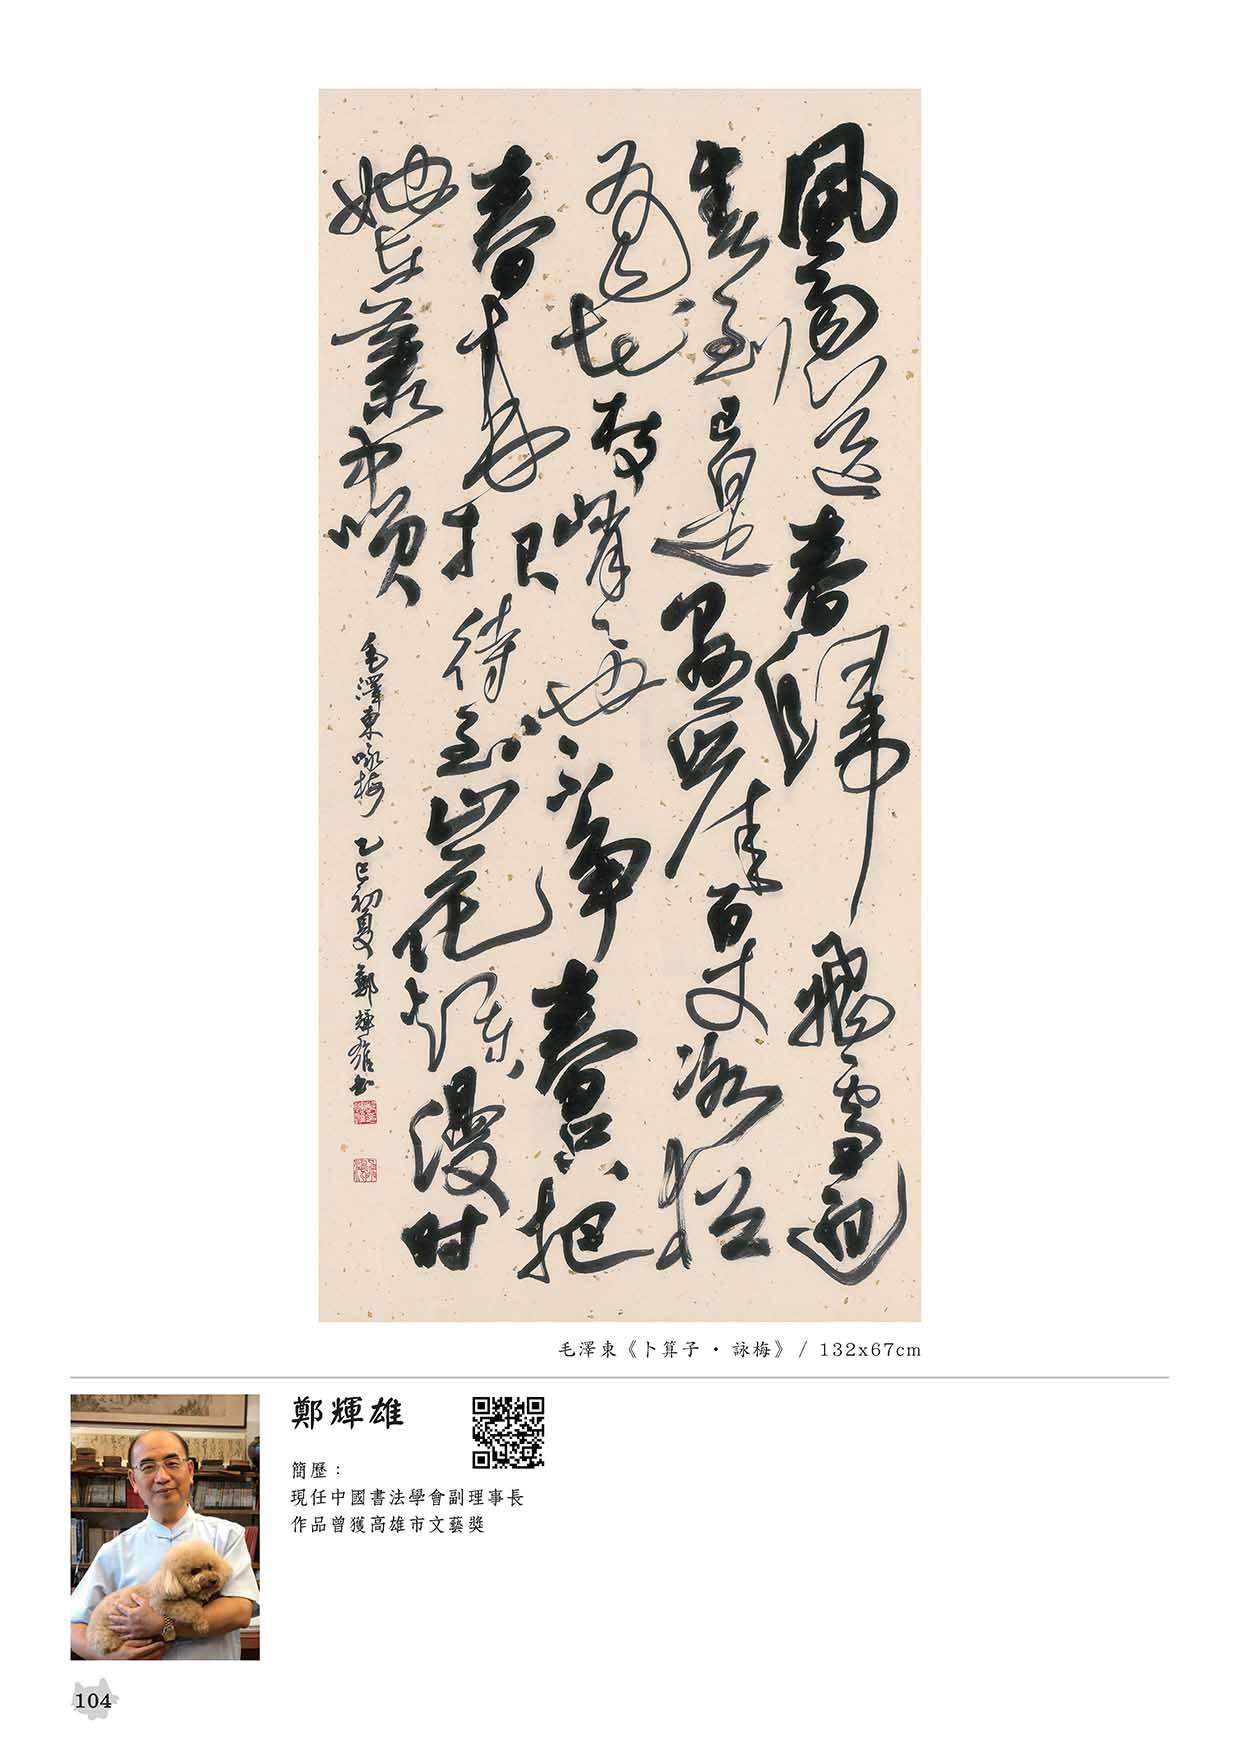 風雨送春歸飛雪迎
春到已是懸崖百丈冰猶
有花枝俏々也不爭春只把
春來報待到山花爛漫时
她在叢中咲
毛澤東咏梅 乙巳初夏 鄭輝雄書
毛澤東《卜算子・詠梅》 / 132x67cm
鄭輝雄
簡歷：
現任中國書法學會副理事長
作品曾獲高雄市文藝獎
104